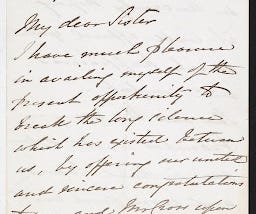 My dear Sister
I have much pleasure
in availing myself of the
present opportunity to
break the long silence
which has existed between
us, by offering our united
and sincere congratulations
to and Mr Cross upon